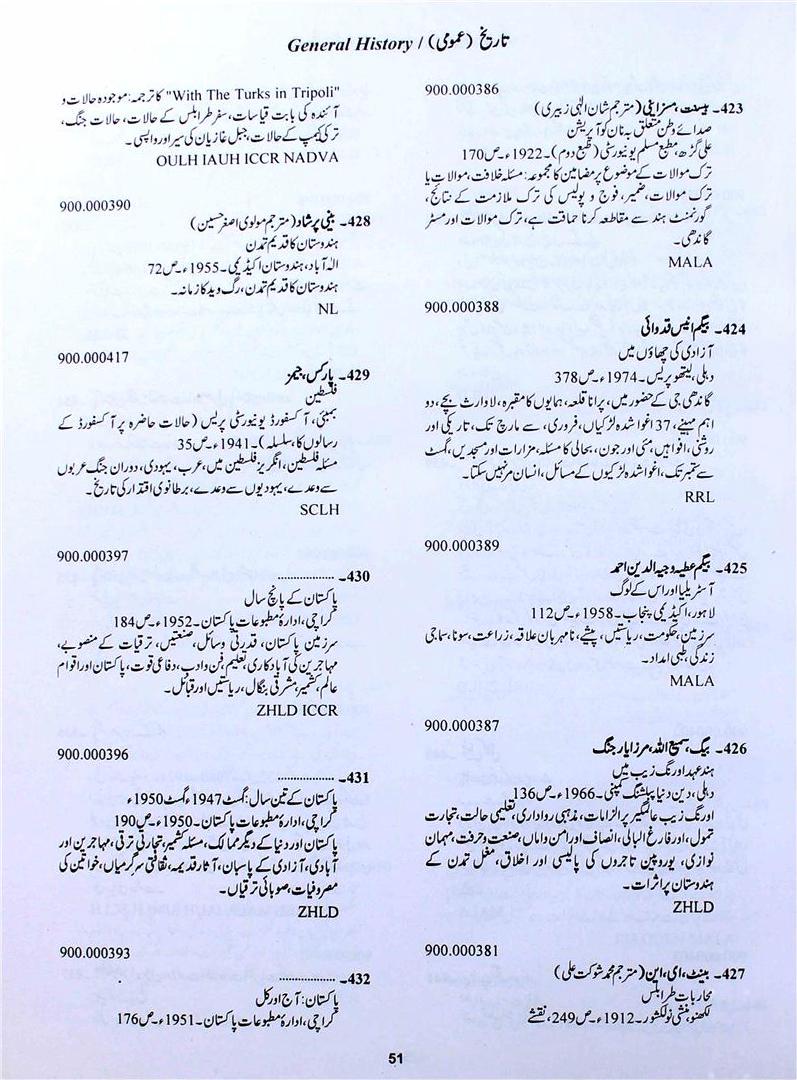 تاریخ (عمومی) / General History
900.000386
423۔ بیسنت، مسز اینی (مترجم شان الٰہی زبیری)
صدائے وطن متعلق بہ نان کوآپریشن
علی گڑھ، مطبع مسلم یونیورسٹی (طبع دوم)۔ 1922ء۔ ص170
ترک موالات کے موضوع پر مضامین کا مجموعہ: مسئلہ خلافت، موالات یا
ترک موالات، ضمیر، فوج و پولیس کی ترک ملازمت کے نتائج،
گورنمنٹ ہند سے مقاطعہ کرنا حماقت ہے، ترک موالات اور مسٹر
گاندھی۔
MALA
900.000388
424۔ بیگم انیس قدوائی
آزادی کی چھاؤں میں
دہلی، لیتھو پریس۔ 1974ء۔ ص378
گاندھی جی کے حضور میں، پرانا قلعہ، ہمایوں کا مقبرہ، لاوارث بچے، دو
اہم مہینے، 37 اغوا شدہ لڑکیاں، فروری، سے مارچ تک، تاریکی اور
روشنی، افواہیں، مئی اور جون، بحالی کا مسئلہ، مزارات اور مسجدیں، اگست
سے ستمبر تک، اغوا شدہ لڑکیوں کے مسائل، انسان مر نہیں سکتا۔
RRL
900.000389
425۔ بیگم عطیہ وجیہ الدین احمد
آسٹریلیا اور اس کے لوگ
لاہور، اکیڈیمی پنجاب۔ 1958ء۔ ص112
سرزمین، حکومت، ریاستیں، پیشے، نامہربان علاقہ، زراعت، سونا، سماجی
زندگی، طبی امداد۔
MALA
900.000387
426۔ بیگ، سمیع اللہ، مرزا یار جنگ
ہند عہد اورنگ زیب میں
دہلی، دین دنیا پبلشنگ کمپنی۔ 1966ء۔ ص136
اورنگ زیب عالمگیر پر الزامات، مذہبی رواداری، تعلیمی حالت، تجارت
تمول، اور فارغ البالی، انصاف اور امن و اماں، صنعت و حرفت، مہمان
نوازی، یوروپین تاجروں کی پالیسی اور اخلاق، مغل تمدن کے
ہندوستان پر اثرات۔
ZHLD
900.000381
427۔ بینٹ، ای، این (مترجم محمد شوکت علی)
محاربات طرابلس
لکھنؤ، منشی نولکشور۔ 1912ء۔ ص249، نقشے
"With The Turks in Tripoli" کا ترجمہ: موجودہ حالات و
آئندہ کی بابت قیاسات، سفر طرابلس کے حالات، حالات جنگ،
ترکی کیمپ کے حالات، جبل غازیان کی سیر اور واپسی۔
OULH IAUH ICCR NADVA
900.000390
428۔ بینی پرشاد (مترجم مولوی اصغر حسین)
ہندوستان کا قدیم تمدن
الٰہ آباد، ہندوستان اکیڈیمی۔ 1955ء۔ ص72
ہندوستان کا قدیم تمدن، رگ وید کا زمانہ۔
NL
900.000417
429۔ پارکس، جیمز
فلسطین
بمبئی، آکسفورڈ یونیورسٹی پریس (حالات حاضرہ پر آکسفورڈ کے
رسالوں کا سلسلہ)۔ 1941ء۔ ص35
مسئلہ فلسطین، انگریز فلسطین میں، عرب، یہودی، دوران جنگ عربوں
سے وعدے، یہودیوں سے وعدے، برطانوی اقتدار کی تاریخ۔
SCLH
900.000397
430۔ ..................
پاکستان کے پانچ سال
کراچی، ادارۂ مطبوعات پاکستان۔ 1952ء۔ ص184
سرزمین پاکستان، قدرتی وسائل، صنعتیں، ترقیات کے منصوبے،
مہاجرین کی آبادکاری، تعلیم، فن و ادب، دفاعی قوت، پاکستان اور اقوام
عالم، کشمیر، مشرقی بنگال، ریاستیں اور قبائل۔
ZHLD ICCR
900.000396
431۔ ..................
پاکستان کے تین سال: اگست 1947ء، اگست 1950ء
کراچی، ادارۂ مطبوعات پاکستان۔ 1950ء۔ ص190
پاکستان اور دنیا کے دیگر ممالک، مسئلہ کشمیر، تجارتی ترقی، مہاجرین اور
آبادی، آزادی کے پاسبان، آثار قدیمہ، ثقافتی سرگرمیاں، خواتین کی
مصروفیات، صوبائی ترقیاں۔
ZHLD
900.000393
432۔ ..................
پاکستان: آج اور کل
کراچی، ادارۂ مطبوعات پاکستان۔ 1951ء۔ ص176
51